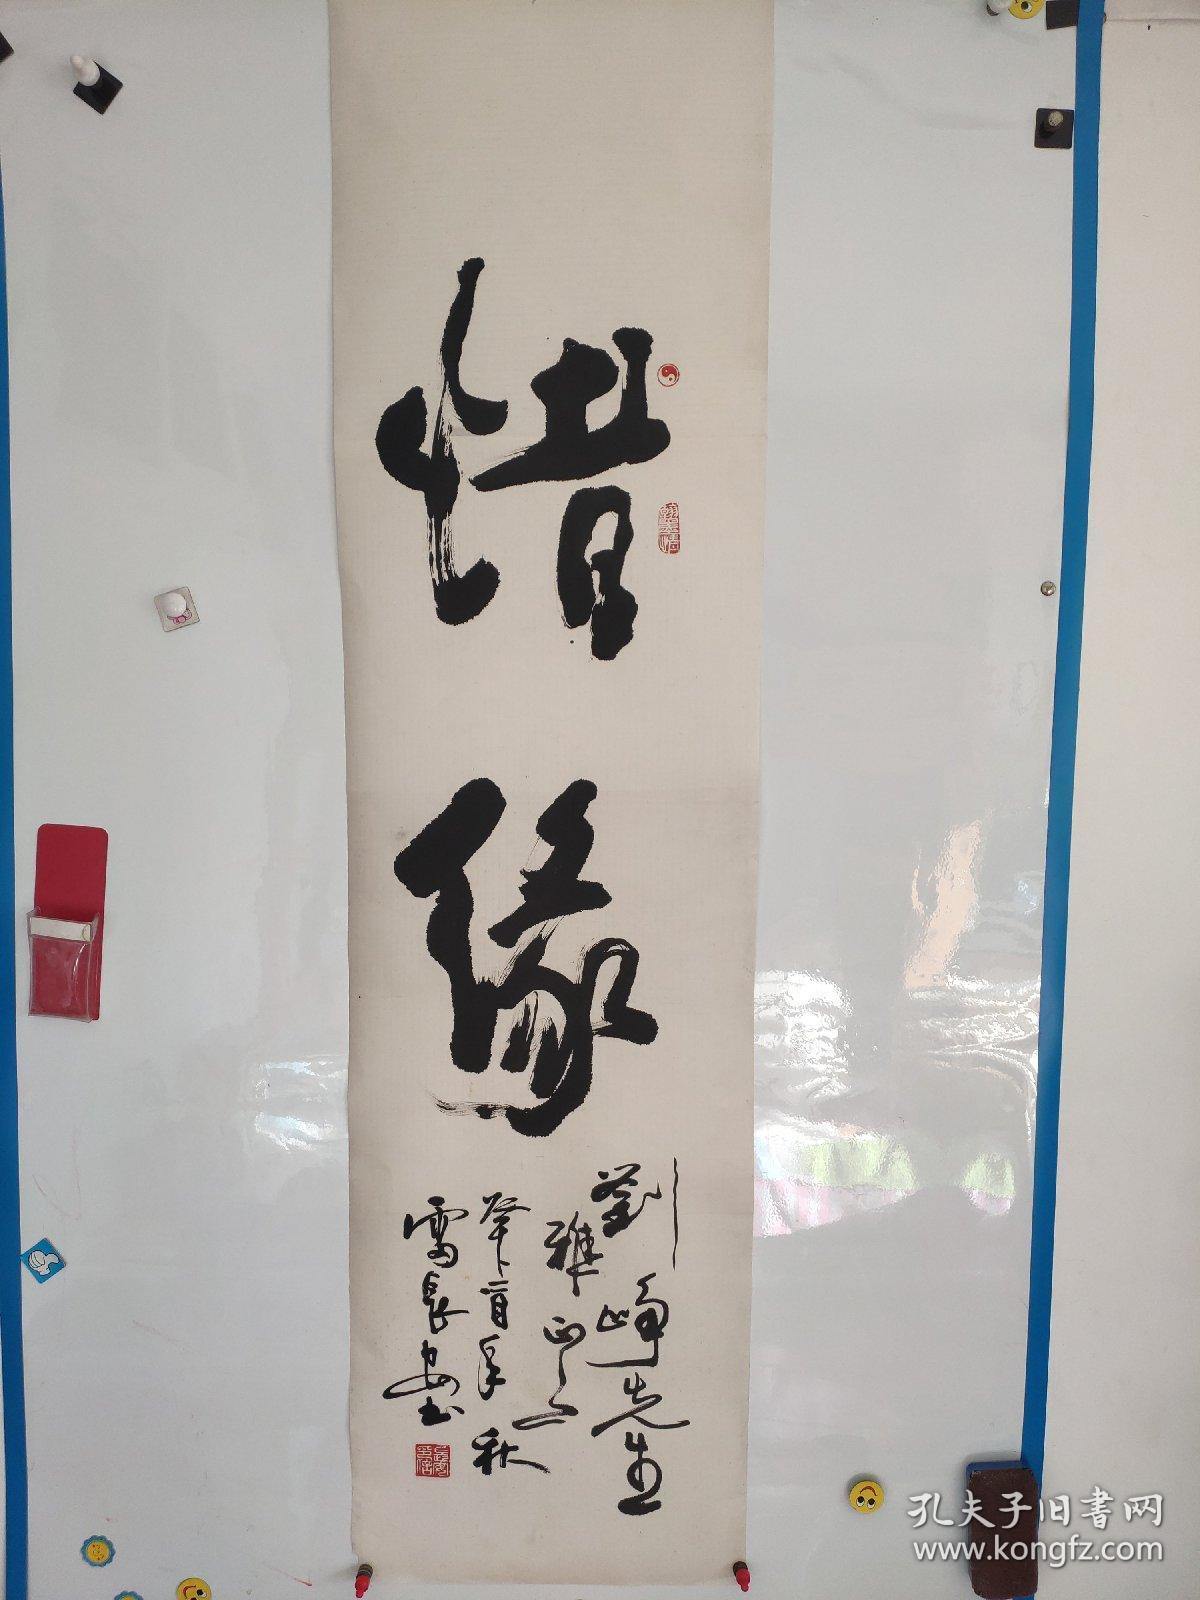 惜缘
劉峥先生
雅正之
癸酉年秋
雷長安书
孔夫子旧书网
www.kongfz.com